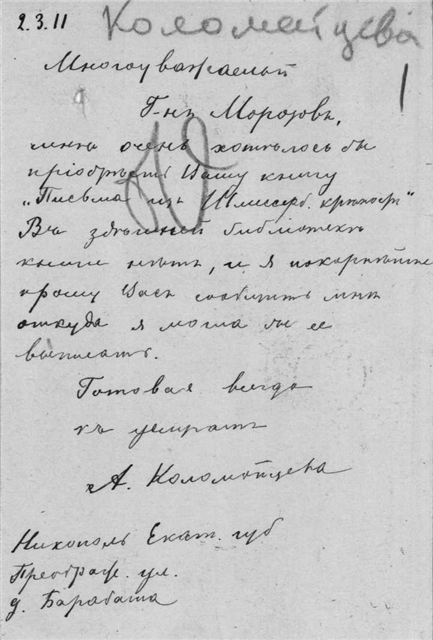 2.3.11
Коломейцева
1
Многоуважаемый
Г-нъ Морозовъ,
мнѣ очень хотѣлось бы
пріобрѣсть Вашу книгу
„Письма изъ Шлиссерб. крѣпости"
Въ здѣшней библіотекѣ
книги нѣтъ, и я покорнѣйше
прошу Васъ сообщить мнѣ
откуда я могла бы ее
выписать.
Готовая всегда
къ услугамъ
А. Коломойцева
Никополь Екат. губ
Преображ. ул.
д. Барабаша